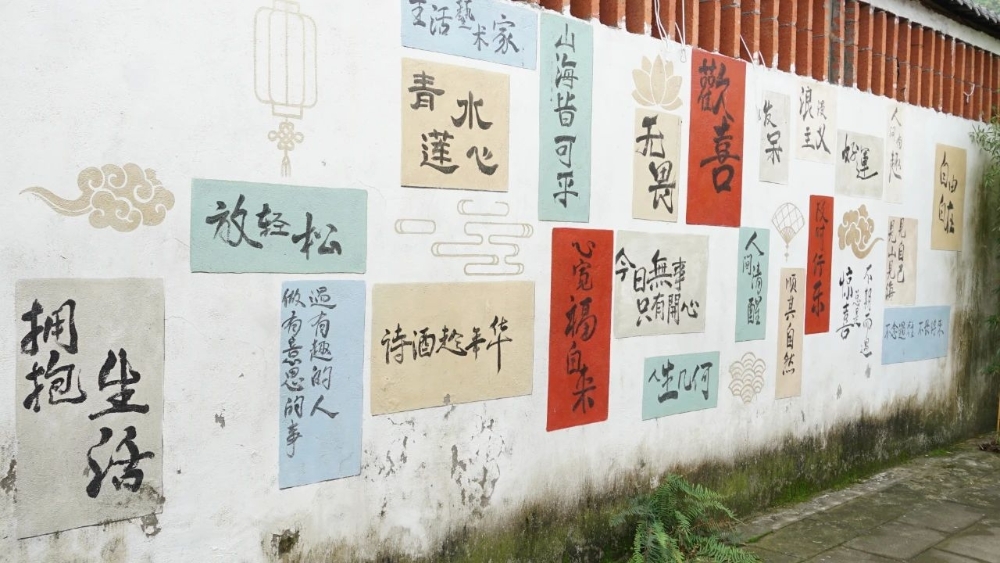 拥抱
生活
放轻松
生活藝术家
青莲
水心
遇有趣的人
做有意思的事
诗酒趁年华
山海皆可平
心宽福自来
无畏
歡喜
今日無事
只有開心
人生几何
人间清醒
发呆
浪漫
主义
顺其自然
及时行乐
不期而遇
惊喜
見自己
自由
自在